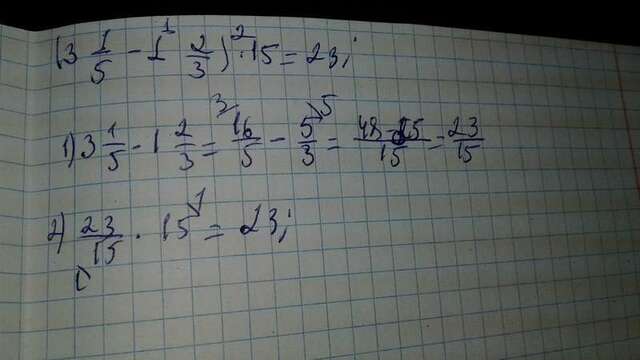 (3 1/5 - 1¹ 2/3)² · 15 = 23;
1) 3 1/5 - 1 2/3 = 16/5 ³ - 5/3 ⁵ = 48-25/15 = 23/15
2) 23/15 · 15 ¹ = 23;